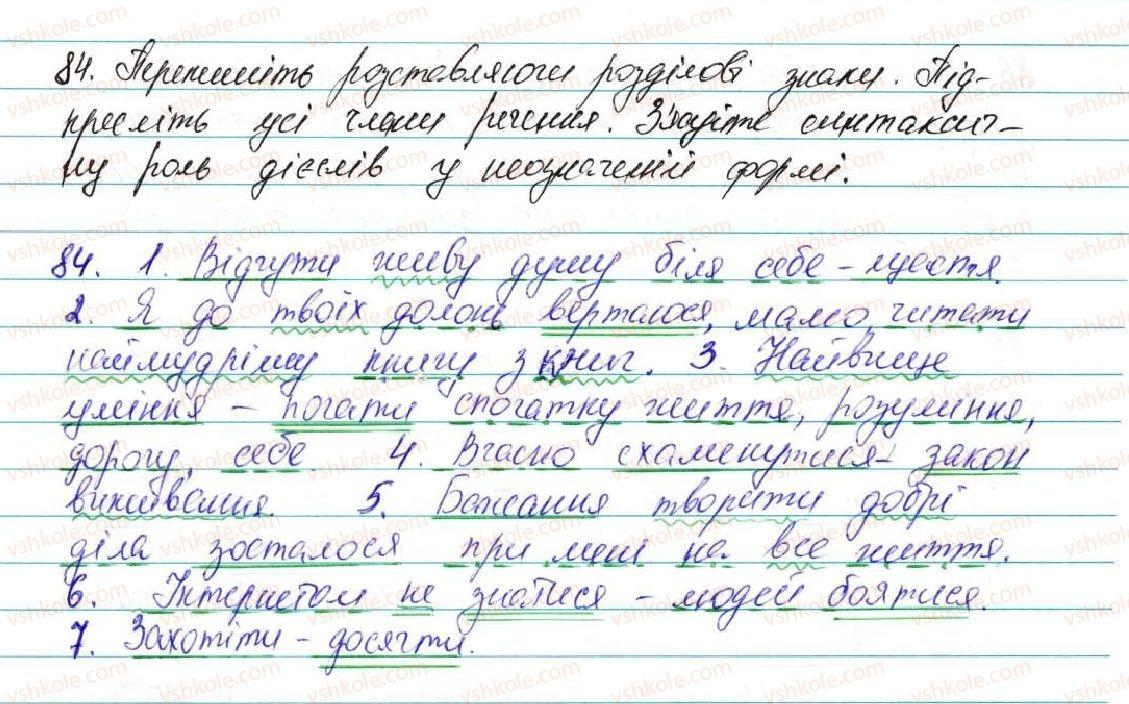 84. Перепишіть розставляючи розділові знаки. Під-
кресліть усі члени речення. З'ясуйте синтаксич-
ну роль дієслів у неозначеній формі.
84. 1. Відчути живу душу біля себе – щастя.
2. Я до твоїх долонь верталося, мамо, читати
наймудрішу книгу з книг. 3. Найвище
уміння – почати спочатку життя, розуміння,
дорогу, себе. 4. Вчасно схаменутися – закон
виживання. 5. Бажання творити добрі
діла зосталося при мені на все життя.
6. Інтернетом не знатися – людей боятися.
7. Захотіти – досягти.